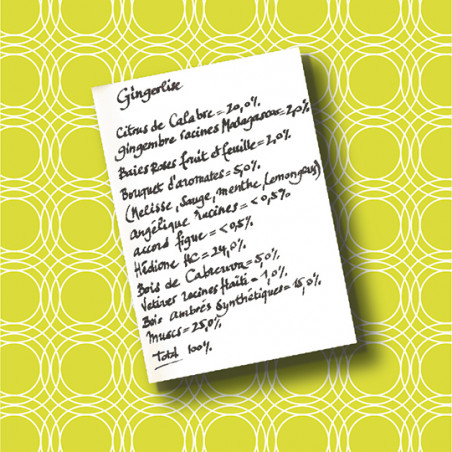 Gingerlise
Citrus de Calabre = 20,0%
gingembre racines Madagascar = 2,0%
Baies Roses fruit et feuille = 2,0%
Bouquet d'aromates = 5,0%
(Melisse, Sauge, menthe, Lemongrass)
angélique racines = <0,5%
accord figue = <0,5%
Hédione HC = 24,0%
Bois de Cabreuva = 5,0%
Vetiver racines Haïti = 1,0%
Bois ambrés synthétiques = 15,0%
Muscs = 25,0%
Total 100%